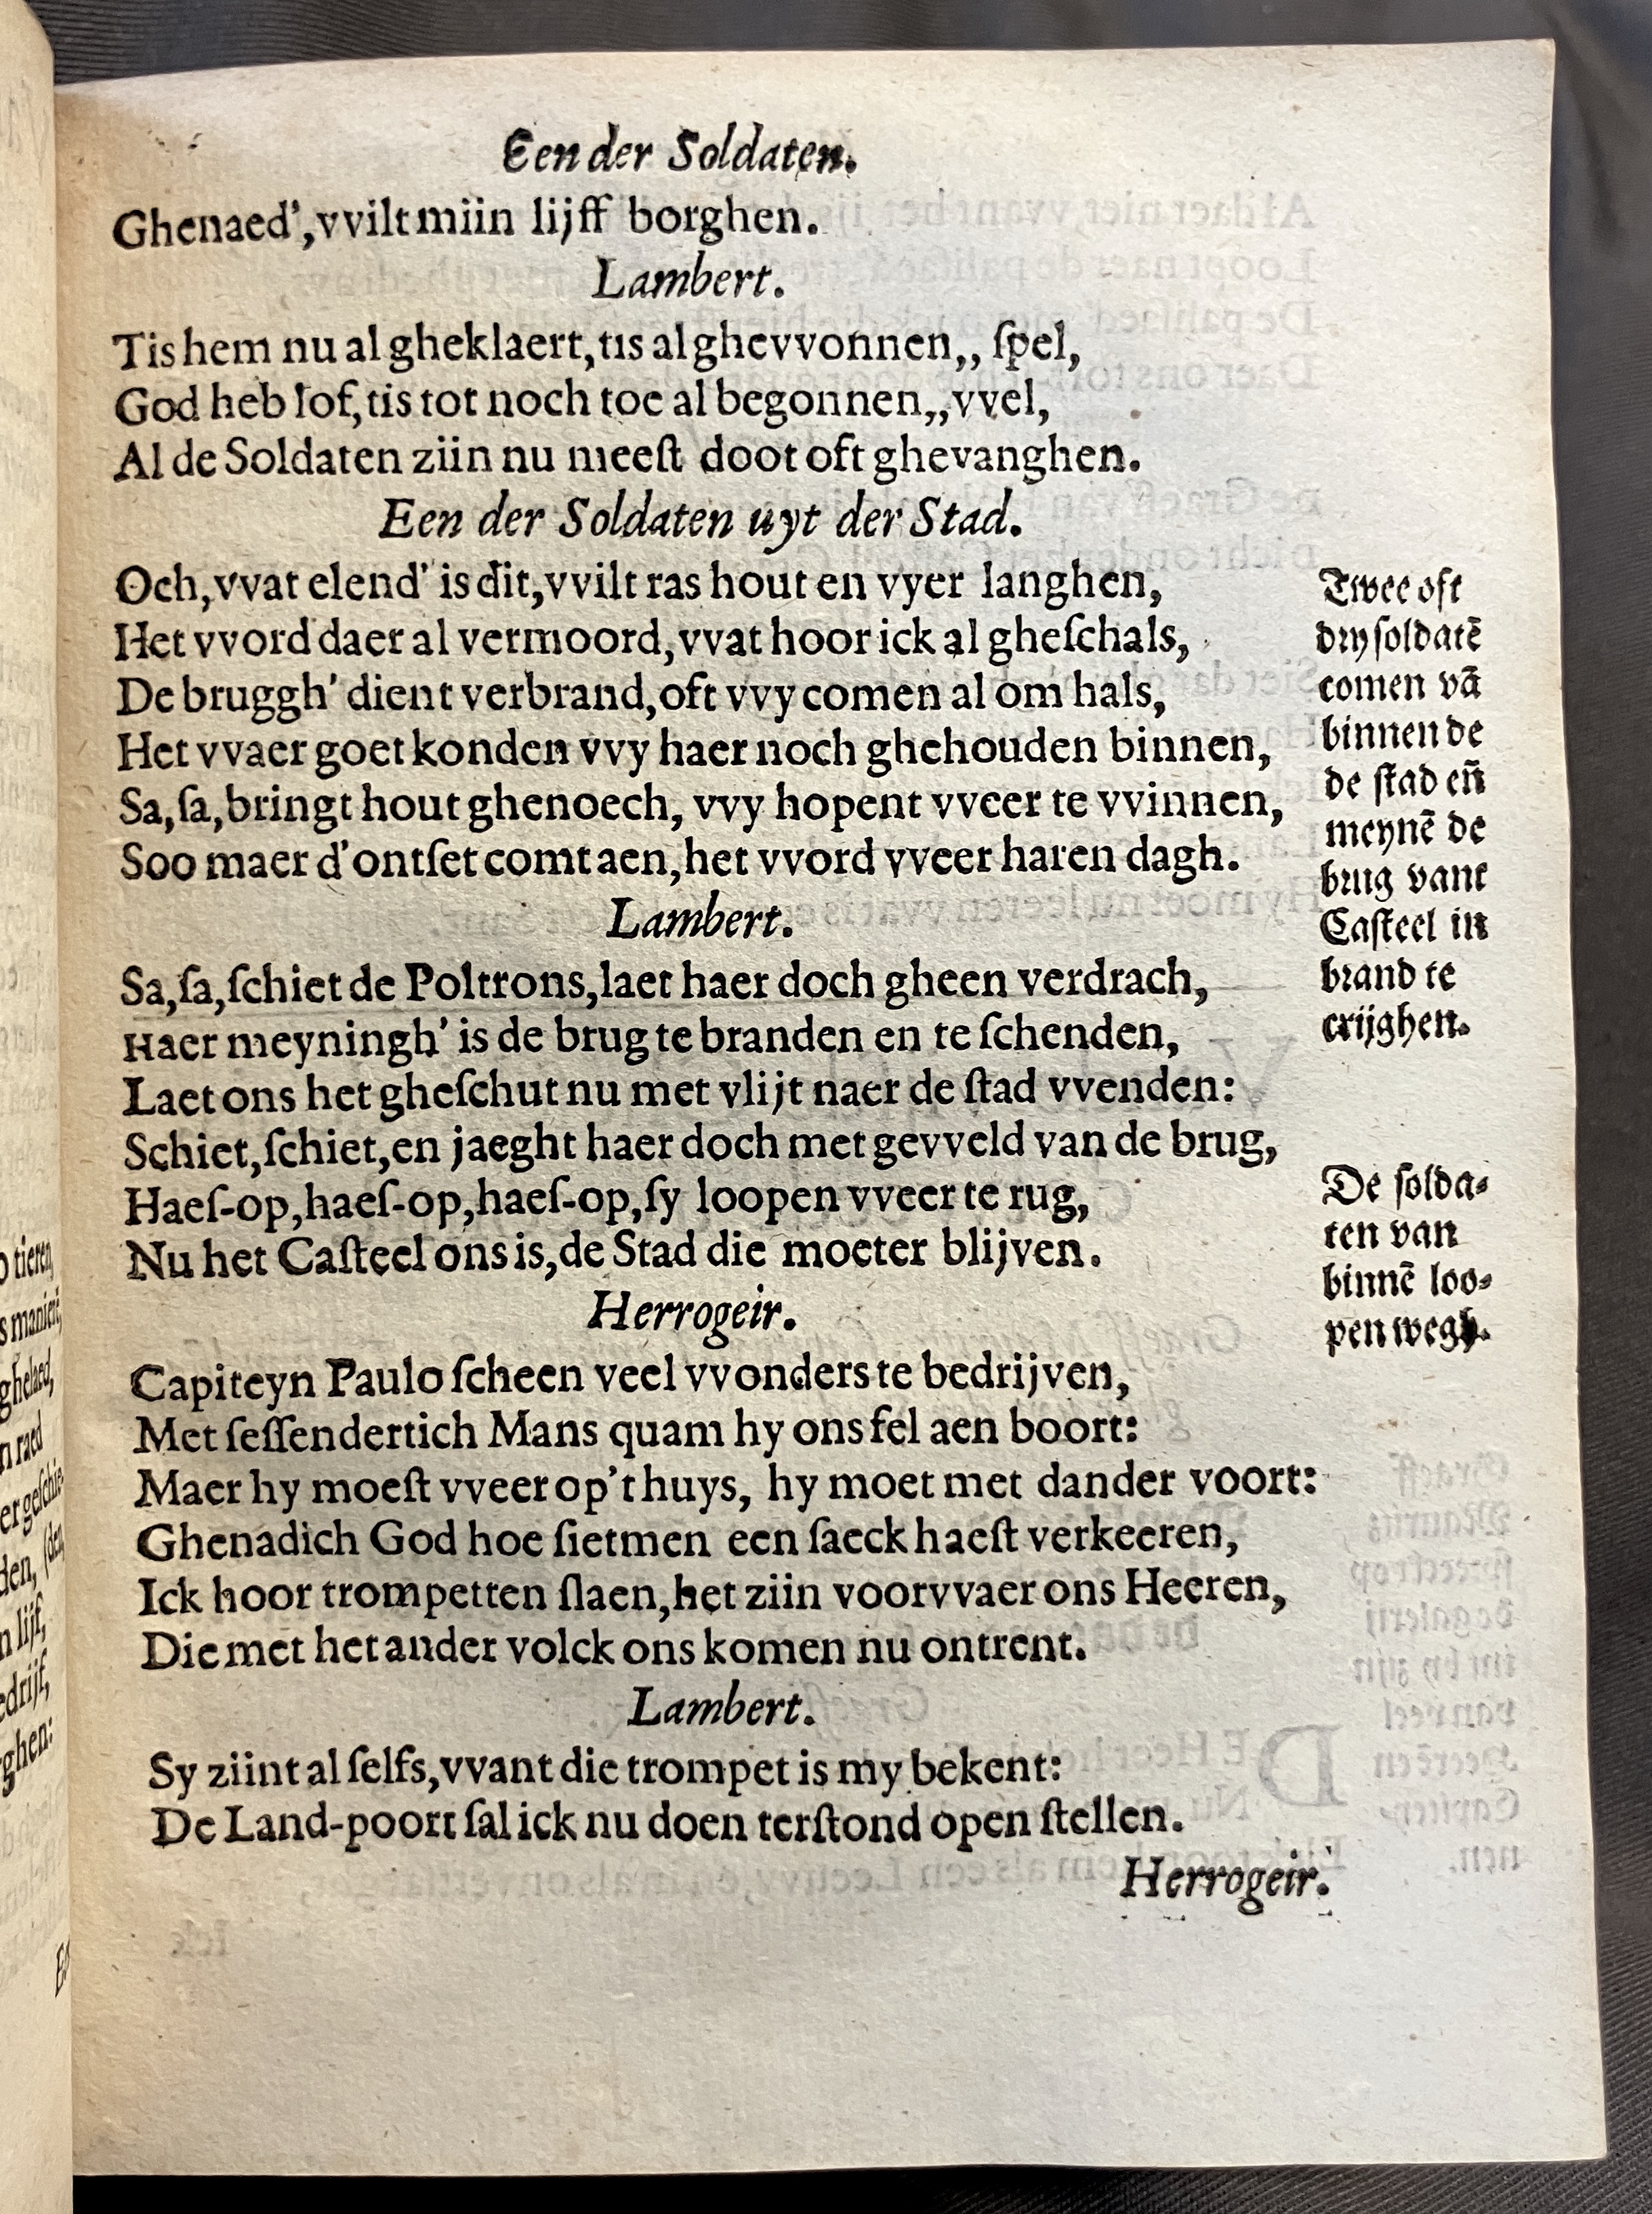 Een der Soldaten.
Ghenaed', vvilt miin lijff borghen.
Lambert.
Tis hem nu al gheklaert, tis al ghevvonnen,, ſpel,
God heb lof, tis tot noch toe al begonnen,, vvel,
Al de Soldaten ziin nu meeſt doot oft ghevanghen.
Een der Soldaten uyt der Stad.
Och, vvat elend' is dit, vvilt ras hout en vyer langhen,
Het vvord daer al vermoord, vvat hoor ick al gheſchals,
De bruggh' dient verbrand, oft vvy comen al om hals,
Het vvaer goet konden vvy haer noch ghehouden binnen,
Sa, ſa, bringt hout ghenoech, vvy hopent vveer te vvinnen,
Soo maer d'ontſet comt aen, het vvord vveer haren dagh.
Twee oft
dry ſoldatē
comen vā
binnen de
de ſtad eñ
meynē de
brug vant
Caſteel in
brand te
crijghen.
Lambert.
Sa, ſa, ſchiet de Poltrons, laet haer doch gheen verdrach,
Haer meyningh' is de brug te branden en te ſchenden,
Laet ons het gheſchut nu met vlijt naer de ſtad vvenden:
Schiet, ſchiet, en jaeght haer doch met gevveld van de brug,
Haeſ-op, haeſ-op, haeſ-op, ſy loopen vveer te rug,
Nu het Caſteel ons is, de Stad die moeter blijven.
De ſolda-
ten van
binnē loo-
pen wegh.
Herrogeir.
Capiteyn Paulo ſcheen veel vvonders te bedrijven,
Met ſeſſendertich Mans quam hy ons fel aen boort:
Maer hy moeſt vveer op't huys, hy moet met dander voort:
Ghenadich God hoe ſietmen een ſaeck haeſt verkeeren,
Ick hoor trompetten ſlaen, het ziin voorvvaer ons Heeren,
Die met het ander volck ons komen nu ontrent.
Lambert.
Sy ziint al ſelfs, vvant die trompet is my bekent:
De Land-poort ſal ick nu doen terſtond open ſtellen.
Herrogeir.